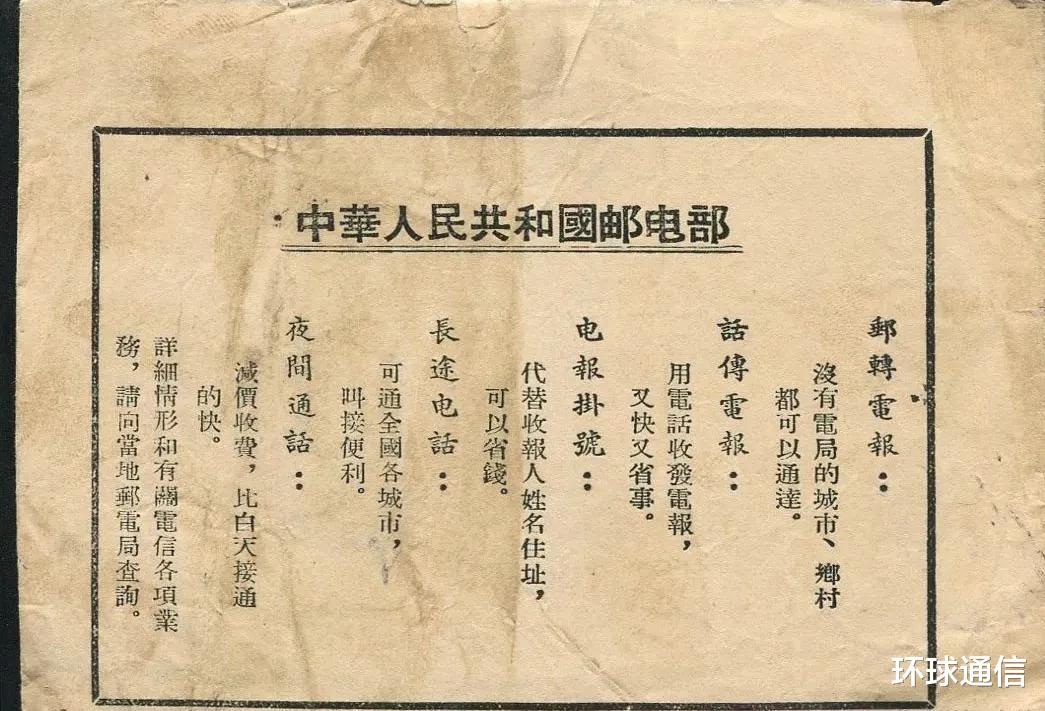 中華人民共和國邮电部
郵轉電報：
沒有電局的城市、鄉村
都可以通達。
話傳電報：
用電話收發電報，
又快又省事。
电報掛號：
代替收報人姓名住址，
可以省錢。
長途电話：
可通全國各城市，
叫接便利。
夜間通話：
減價收費，比白天接通
的快。
詳細情形和有關電信各項業
務，請向當地郵電局查詢。
环球通信